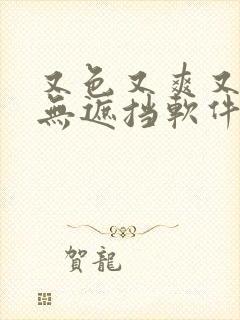 又色又爽又
無遮挡軟件
賀龍